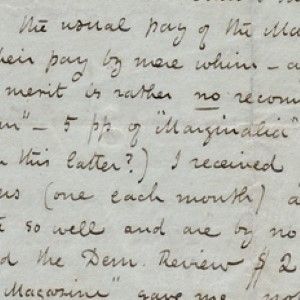 the usual pay of the Ma
heir pay by mere whim — a
merit is rather no recom
" — 5 pp of "Marginalia"
this latter?) I received
(one each month) a
so well and are by no
d the Dem. Review $ 2
Magazine" gave me